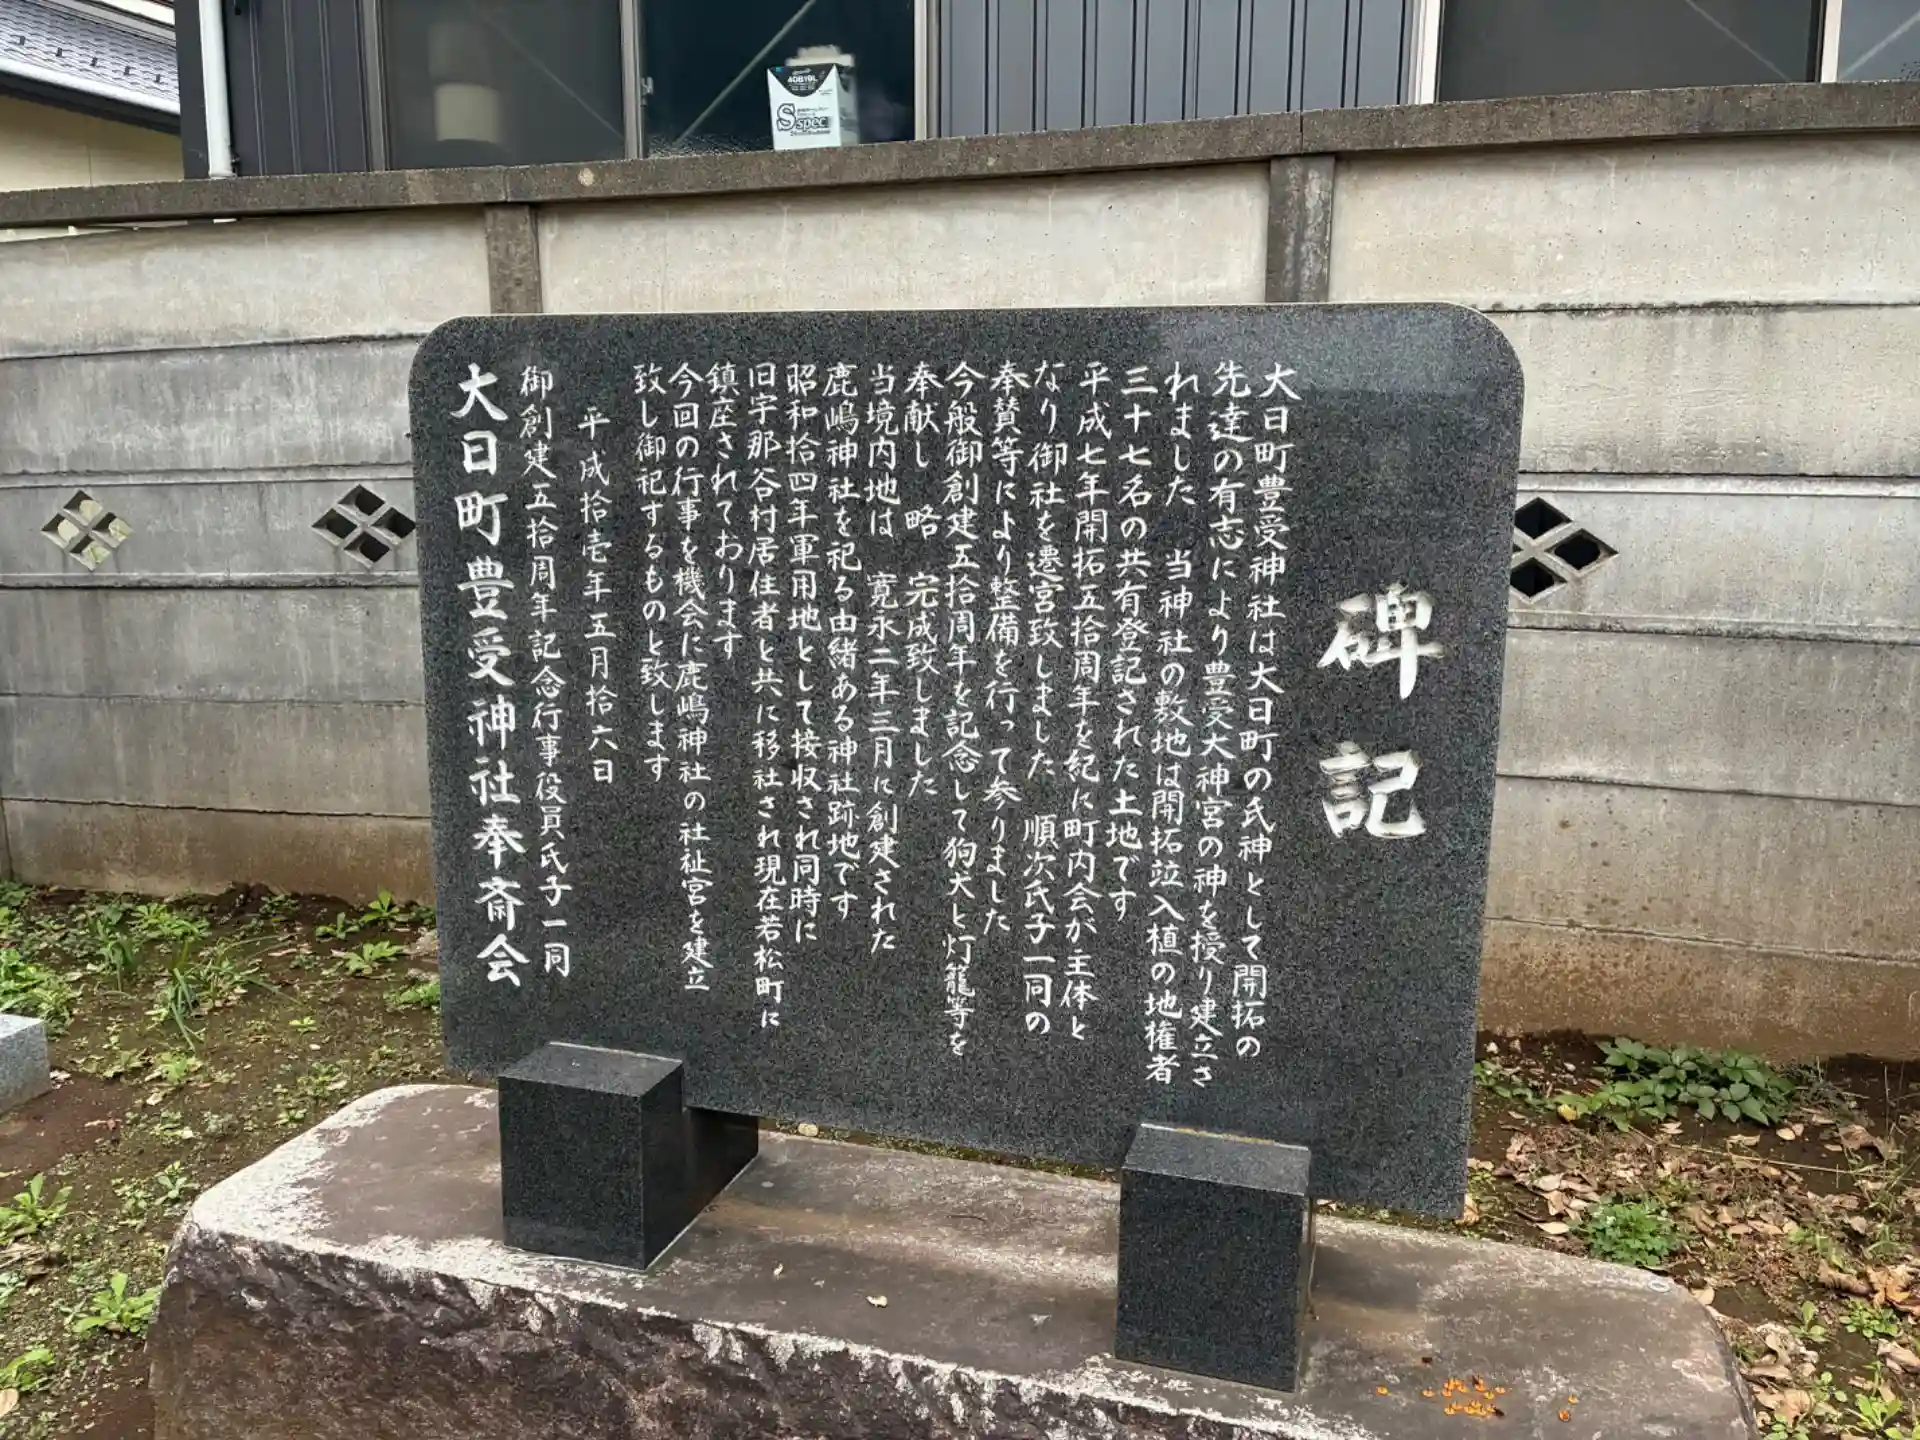 碑記
大日町豊受神社は大日町の氏神として開拓の
先達の有志により豊受大神宮の神を授り建立さ
れました　当神社の敷地は開拓竝入植の地権者
三十七名の共有登記された土地です
平成七年開拓五拾周年を紀に町内会が主体と
なり御社を遷宮致しました　順次氏子一同の
奉賛等により整備を行って参りました
今般御創建五拾周年を記念して狗犬と灯籠等を
奉献し　略　完成致しました
当境内地は　寛永二年三月に創建された
鹿嶋神社を祀る由緒ある神社跡地です
昭和拾四年軍用地として接収され同時に
旧宇那谷村居住者と共に移社され現在若松町に
鎮座されております
今回の行事を機会に鹿嶋神社の社祉宮を建立
致し御祀するものと致します
平成拾壱年五月拾六日
御創建五拾周年記念行事役員氏子一同
大日町豊受神社奉斎会
40B19L
S spec